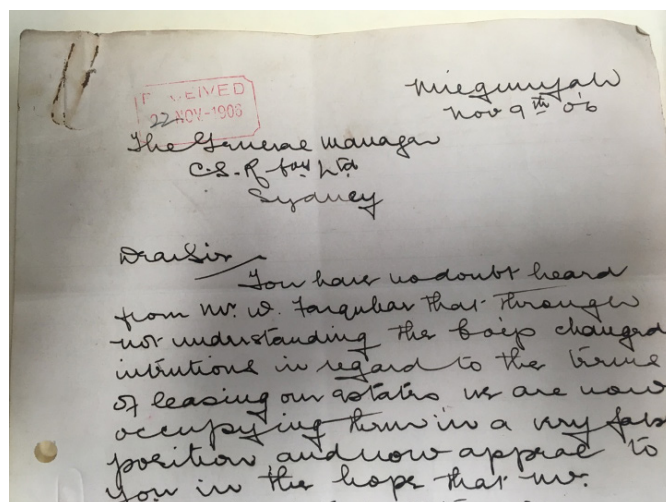 Miegunyah
Nov 9th 06
RECEIVED
22 NOV. 1906
The General Manager
C.S.R Coy Ltd
Sydney
Dear Sir
You have no doubt heard
from Mr. W. Farquhar that through
not understanding the Coy's changed
intentions in regard to the terms
of leasing our estates we are now
occupying them in a very false
position and now appeal to
you in the hope that Mr.